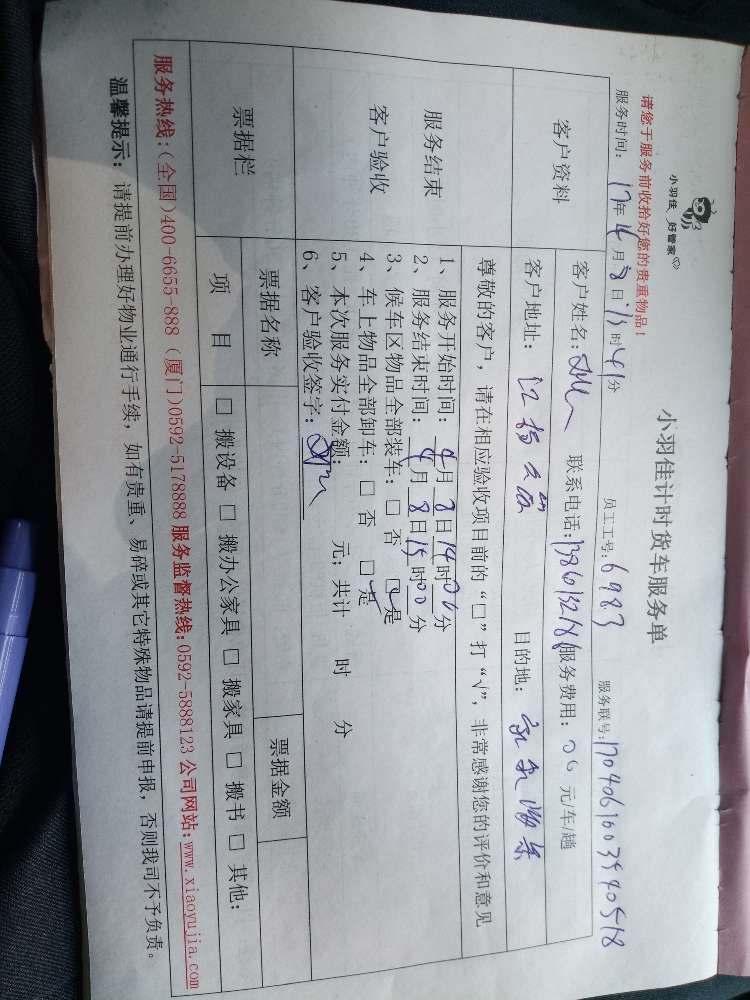 小羽佳 好管家
小羽佳计时货车服务单
请您于服务前收拾好您的贵重物品!
服务时间: 17年4月8日 时41分 员工工号: 6983 服务联号:
客户资料
客户姓名: 联系电话: 服务费用: 元/车/趟
客户地址: 目的地:
尊敬的客户，请在相应验收项目前的“□”打“√”，非常感谢您的评价和意见
服务结束
客户验收
1、服务开始时间: 4月8日14时 分
2、服务结束时间: 4月8日15时00分
3、候车区物品全部装车: □ 否 □ 是
4、车上物品全部卸车: □ 否 □ 是
5、本次服务实付金额: 元; 共计 时 分
6、客户验收签字:
票据栏
票据名称 票据金额
项 目 □ 搬设备 □ 搬办公家具 □ 搬家具 □ 搬书 □ 其他:
服务热线:(全国)400-6655-888 (厦门)0592-5178888 服务监督热线:0592-5888123 公司网站:www.xiaoyujia.com
温馨提示: 请提前办理好物业通行手续，如有贵重、易碎或其它特殊物品请提前申报，否则我司不予负责。